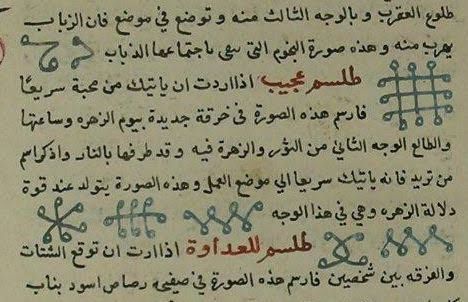 طلوع العقرب و بالوجه الثالث منه و توضع في موضع فان الذباب
يهرب منه و هذه صورة النجوم التي ينفى باجتماعها الذباب
طلسم عجيب اذا اردت ان ياتيك من محبة سريعًا
فارسم هذه الصورة في خرقة جديدة بيوم الزهره وساعتها
والطالع الوجه الثاني من الثور والزهرة فيه و قد طرفها بالنار واذكر اسم
من تريد فانه ياتيك سريعا الي موضع العمل وهذه الصورة يتولد عند قوة
دلالة الزهره وهي في هذا الوجه
طلسم للعداوة اذا ارت ان توقع الشتات
والفرقه بين شخصين فارسم هذه الصورة في صفيحة رصاص اسود بناب